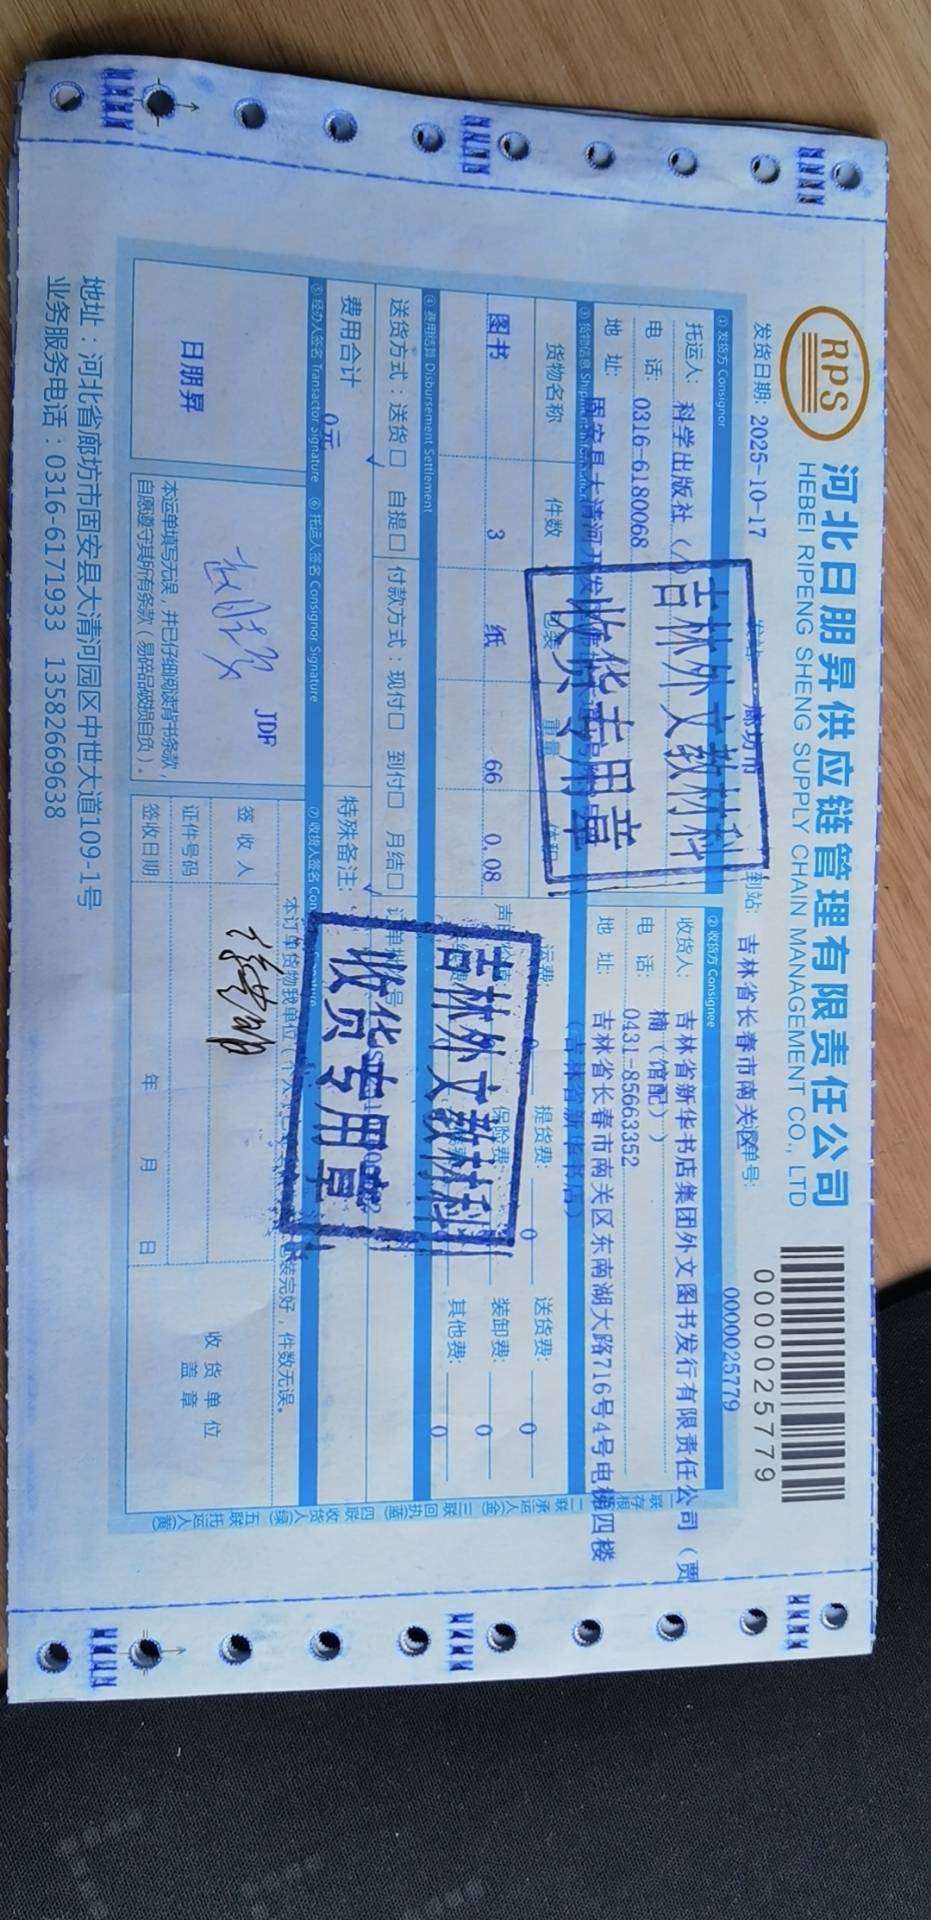 RPS
河北日朋昇供应链管理有限责任公司
HEBEI RIPENG SHENG SUPPLY CHAIN MANAGEMENT CO., LTD
0000025779
发货日期: 2025-10-17
廊坊市
到站: 吉林省长春市南关区
单号: 0000025779
① 发货方 Consignor
托运人: 科学出版社
电 话: 0316-6180068
地 址: 固安县大清河开发
② 收货方 Consignee
收货人: 吉林省新华书店集团外文图书发行有限责任公司（贾
楠（馆配））
电 话: 0431-85663352
地 址: 吉林省长春市南关区东南湖大路716号4号电梯四楼
（吉林省新华书店）
吉林外文教材科
收货专用章
③ 货物信息
货物名称 件数 包装 重量 体积
图书 3 纸 66 0.08
运费 提货费: 0 送货费: 0
保险费: 装卸费: 0
其他费: 0
④ 费用结算 Disbursement Settlement
送货方式：送货□ ✓ 自提□ 付款方式：现付□ 到付□ 月结□ ✓
费用合计 0元
特殊备注:
吉林外文教材科
收货专用章
⑤ 经办人签名 Transactor Signature
⑥ 托运人签名 Consignor Signature
⑦ 收货人签名
日朋昇
JDF
本运单填写无误，并已仔细阅读背书条款，
自愿遵守其所有条款（易碎品破损自负）。
本订单货物我单位（个人
装完好，件数无误。
签 收 人
证件号码
签收日期 年 月 日
收 货 单 位
盖 章
一联存根
二联承运人(金)
三联回执(蓝)
四联收货人(绿)
五联托运人(黄)
地址：河北省廊坊市固安县大清河园区中世大道109-1号
业务服务电话：0316-6171933 13582669638